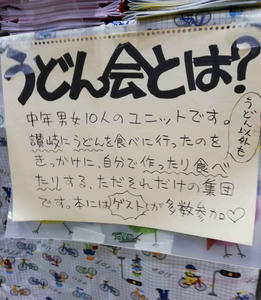 うどん会とは?
中年男女10人のユニットです。
讃岐にうどんを食べに行ったのを
きっかけに、自分で作ったり食べ
たりする、ただそれだけの集団
です。本にはゲストが多数参加♡
うどん以外も